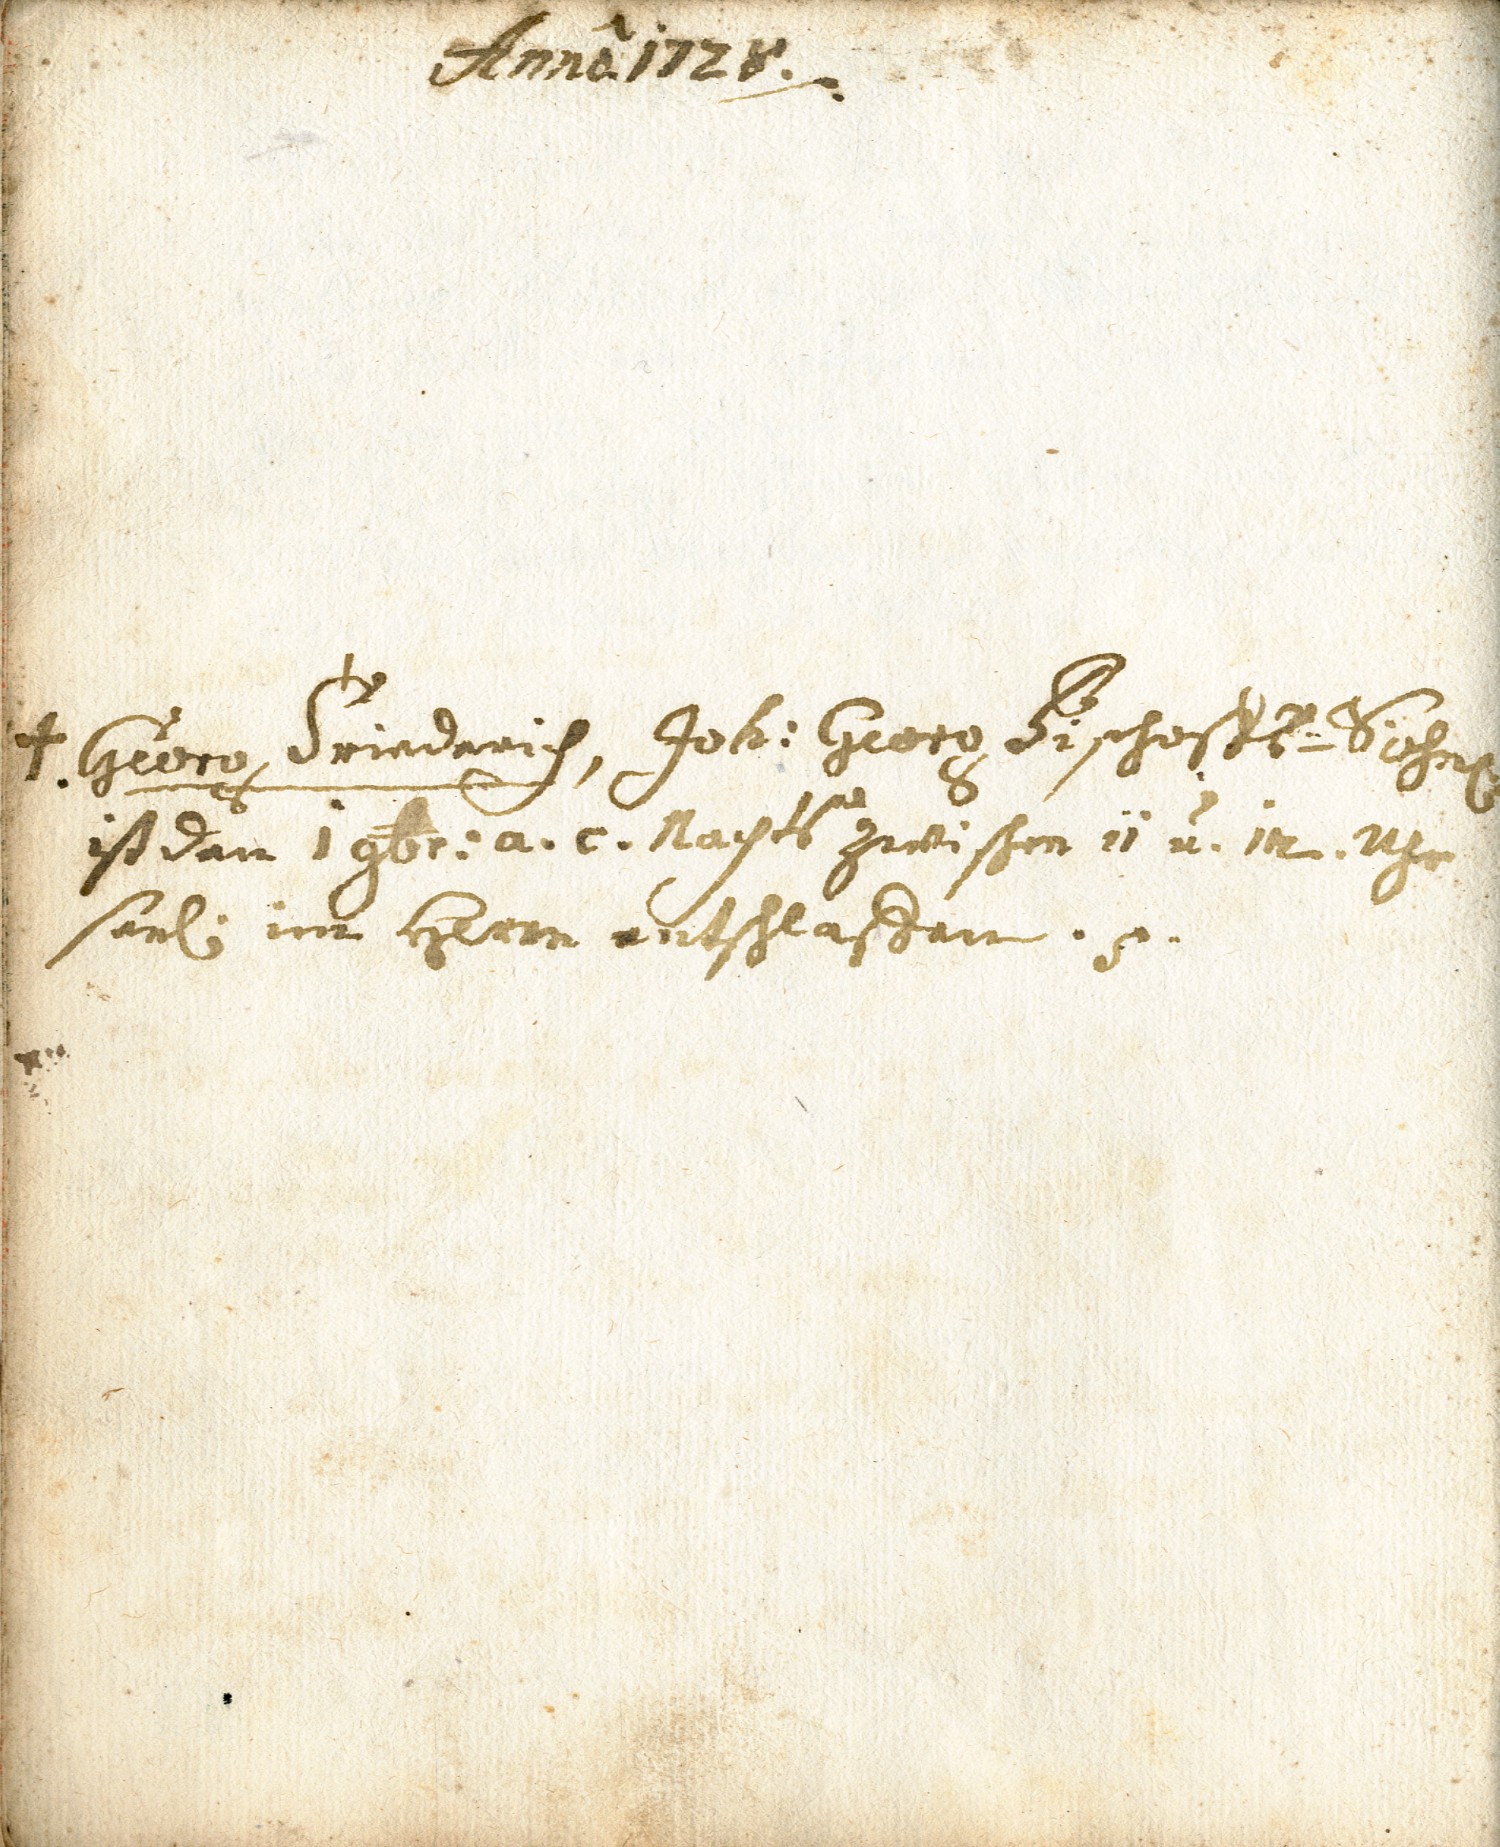 Anno 1728.
†. Georg Friederich, Joh: Georg Bischoffs Söhnl:
ist den 1 9br: a. c. Nachts zwischen 11 u. 12. Uhr
seel: im Herrn entschlaffen.